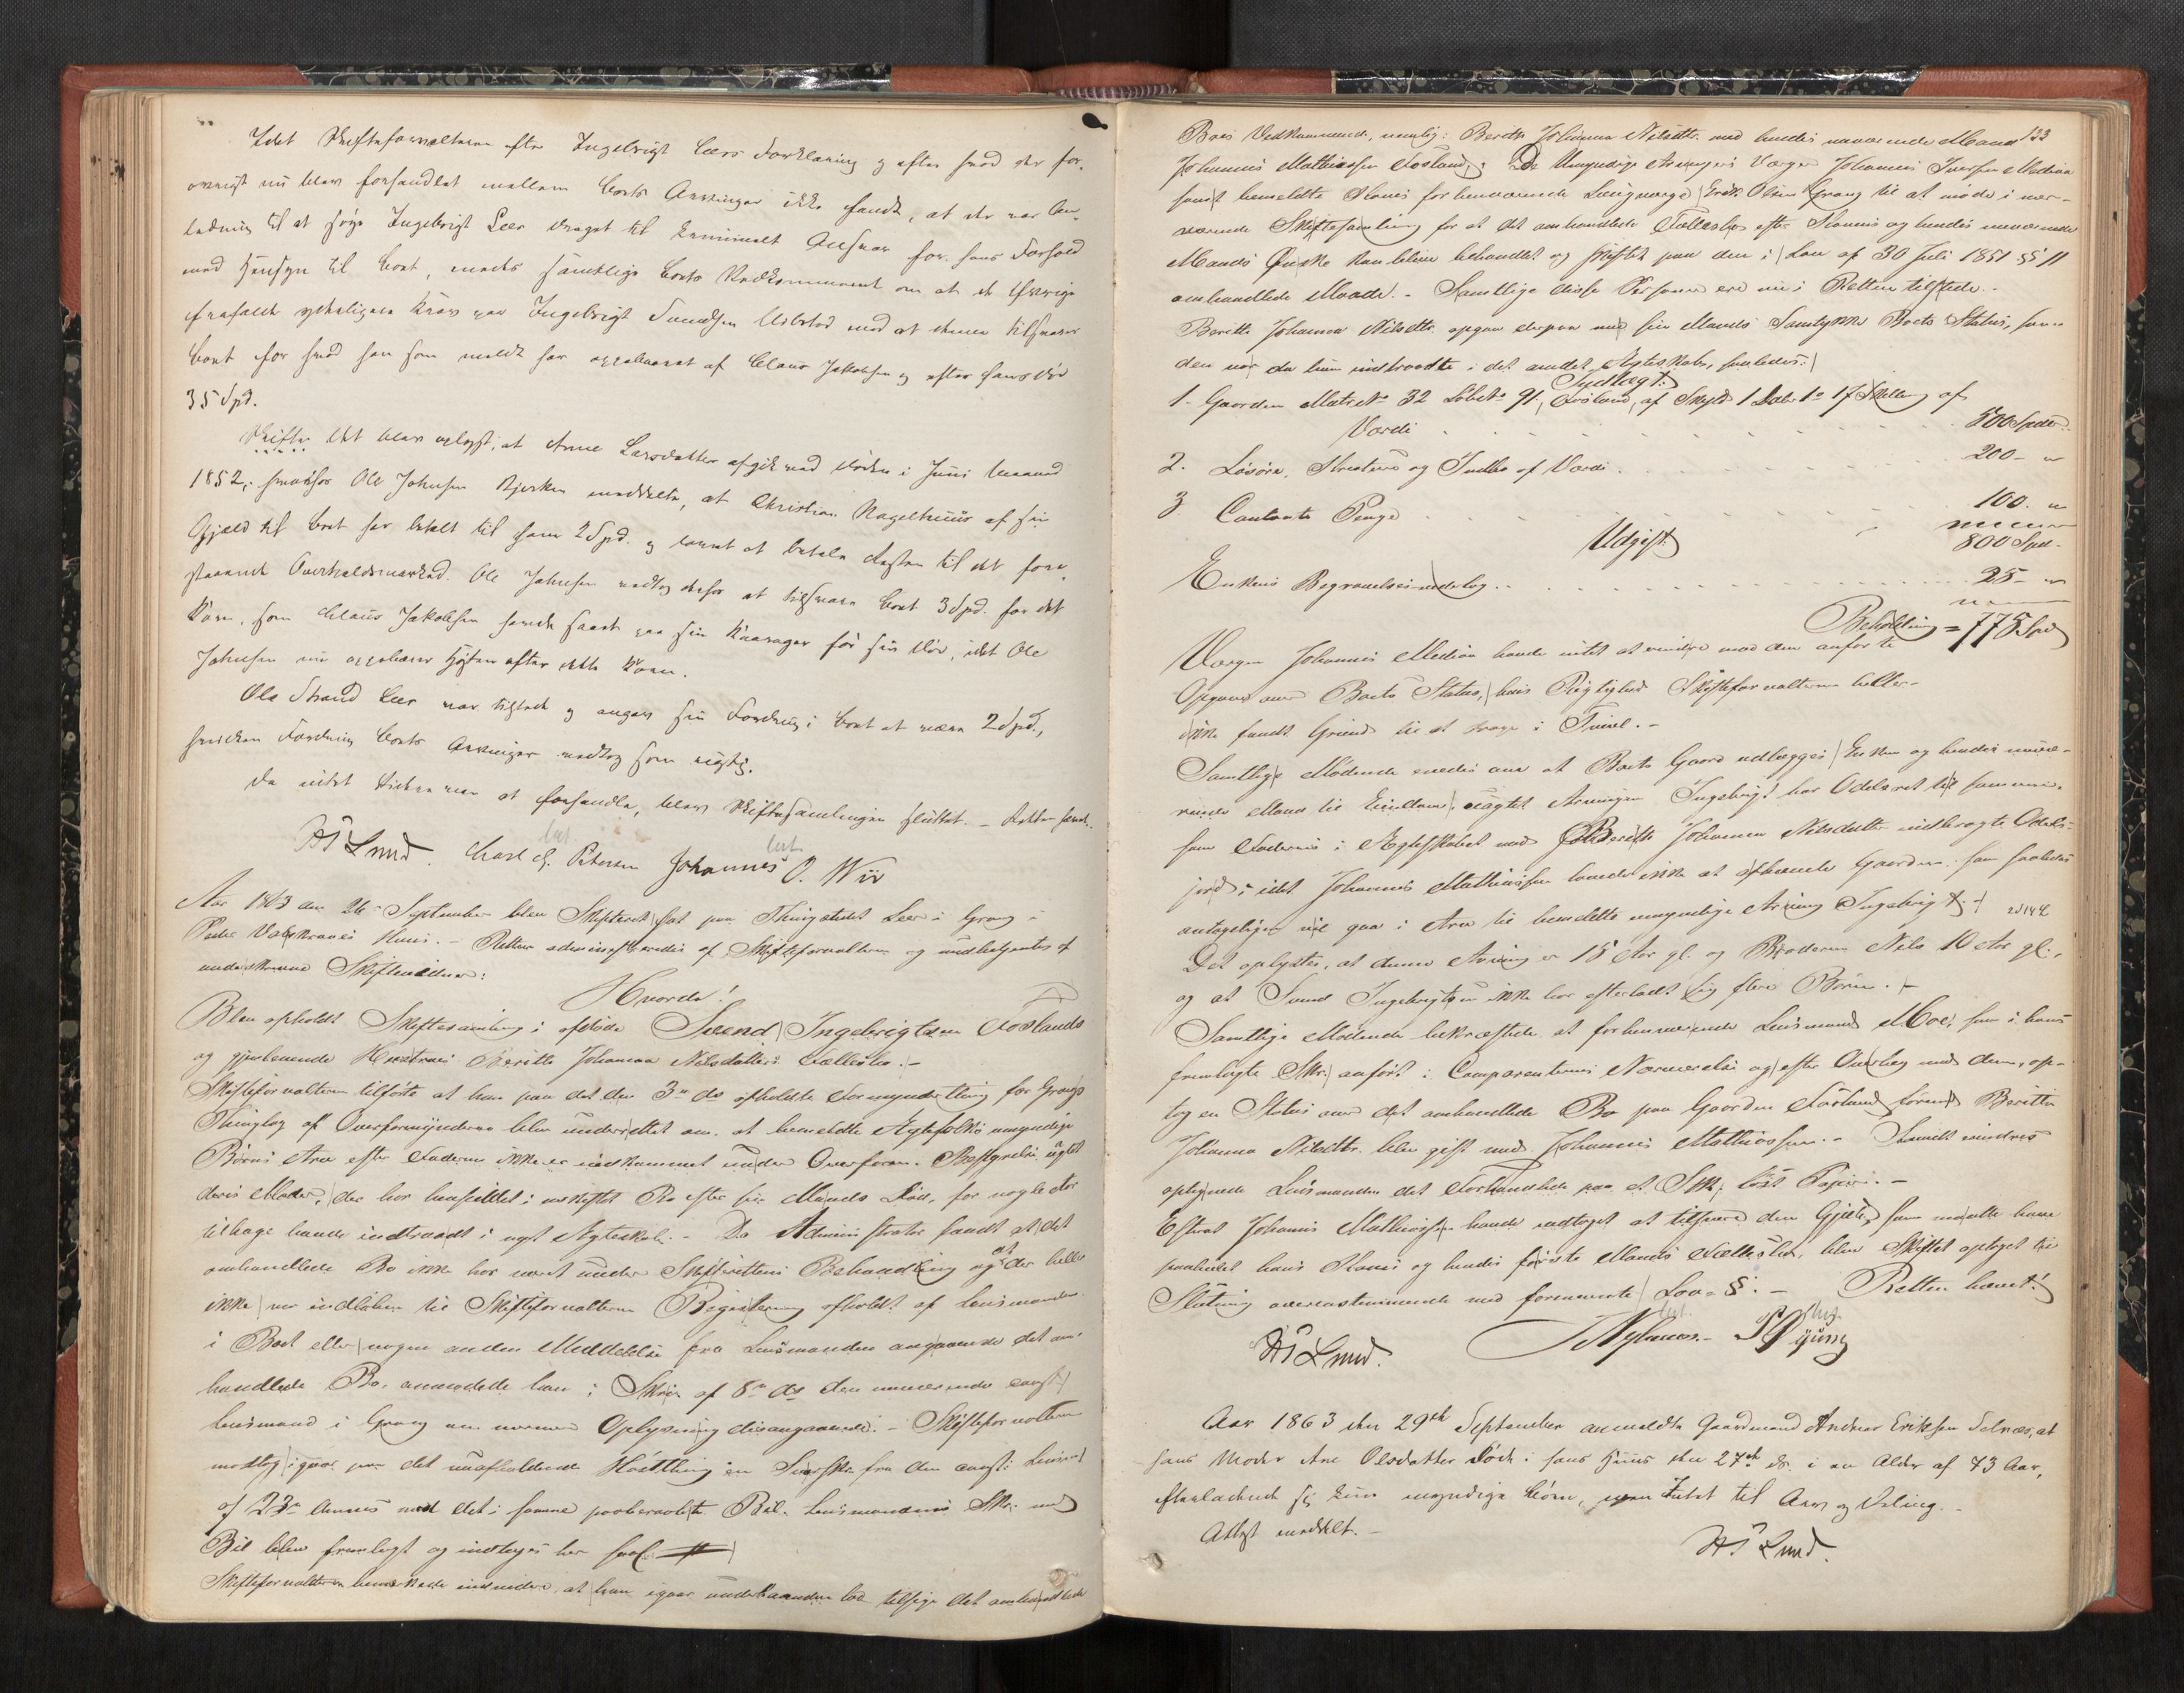 Idet Skifteforvalteren efter Ingebrigt Leers Forklaring og efter hvad der for-
øvrigt nu blev forhandlet mellem Boets Arvinger ikke fandt, at der var An-
ledning til at søge Ingebrigt Leer draget til kriminelt Ansvar for hans Forhold
med Hensyn til Boet, enedes samtlige Boets Vedkommende om at de
frafaldt yderligere Krav paa Ingebrigt mod at denne tilsvarer
Boet for hvad han som meldt har oppebaaret af Claus Jakobsen og efter hans Død
35 Spd.
Skifter det blev oplyst, at Anne Larsdatter afgik ved Døden i Juni Maaned
1852; hvorhos Ole Johnsen Bjerken meddelte, at Christian Nagelhuus af sin
Gjæld til Boet har betalt til ham 2 Spd. og lovet at betale Resten til det fore-
staaende . Ole Johnsen vedtog derfor at tilsvare Boet 3 Spd. for det
Korn, som Claus Jakobsen havde saaet paa sin før sin Død, idet Ole
Johnsen nu oppebærer Høsten efter dette Korn.
Ole Strand Leer var tilstede og angav sin Fordring i Boet at være 2 Spd.,
hvilken Fordring Boets Arvinger vedtog som rigtig.
Da intet videre var at forhandle, blev Skiftesamlingen sluttet. – Retten hævet.
HS Lund. Carl G. Petersen Johannes O. Wiv
Aar 1863 den 26 September blev Skifteret sat paa Thingstedet Leer i Grong i
Peder Huus. – Retten administreredes af Skifteforvalteren og medbetjentes af
underskrevne Skiftevidner:
Hvorda!
Blev opholdt Skiftesamling i afdøde Svend Ingebrigtsen Fosslands
og gjenlevende Hustrues Beritte Johanna Nilsdatters Fællesbo. –
Skifteforvalteren tilførte at han paa det den 3 ds afholdte Formynderthing for Grongs
Thinglag af Overformynderne blev underrettet om, at bemeldte Ægtefolks umyndige
Børns Arv efter Faderen ikke er indkommet under Overform. Bestyrelse, uagtet
deres Moder, der har hensiddet i uskiftet Bo efter sin Mands Død, for nogle Aar
tilbage havde indtraadt i nyt Ægteskab. – Da Administrator fandt at det
omhandlede Bo ikke har været under Skifterettens Behandling og at der heller
ikke var indløben til Skifteforvalteren Registrering afholdt af Lensmanden
i Boet eller nogen anden Meddelelse fra Lensmanden angaaende det om-
handlede Bo, anmodede han i Skr. af 8 ds den nuværende const.
Lensmand i Grong om nærmere Oplysning desangaaende. – Skifteforvalteren
modtog igaar paa det nu afholdende Høstthing en Svarskr. fra den const. Lensmd.
af 23 dennes med det i samme paaberaabte Bil. Lensmandens Skr. med
Bil. blev fremlagt og indtages her saal.
Skifteforvalteren bemærkede endvidere, at han igaar underhaanden lod tilsige det omhandlede
133
Boes Vedkommende, nemlig: Berith Johanna Nilsdtr. med hendes nuværende Mand
Johannes Mathiassen Fosland, De Umyndige Arvingers Værge Johannes Iversen Mediaa
samt bemeldte Kones forhenværende Laugværge Erik Olsen Grong til at møde i nær-
værende Skiftesamling for at det omhandlede Fællesbo efter Konens og hendes nuværende
Mands Ønske kan blive behandlet og skiftet paa den i Lov af 30 Juli 1851 §§ 11
omhandlede Maade. – Samtlige disse Personer ere nu i Retten tilstede. –
Beritte Johanna Nilsdtr. opgav derpaa med sin Mands Samtykke Boets Status, saa-
den var da hun indtraadte i det andet Ægteskab, saaledes:
Indtægt:
1. Gaarden Matr. No 32 Løbe No 91, Fosland, af Skyld 1 Daler 1 o 17 Skilling af
Værdi 500 Spdr.
2. Løsøre, Kreature og Indbo af Værdi 200 – "
3. Contante Penge 100 "
800 Spd.
Udgift
Enkens Begravelsesudlæg 25 – "
Beholdning = 775 Spd
Værgen Johannes Mediaa havde intet at erindre mod den anførte
Opgave over Boets Status, hvis Rigtighed Skifteforvalteren heller
ikke fandt Grund til at drage i Tvivl. –
Samtlige Mødende enedes om at Boets Gaard udlægges Enken og hendes nuvæ-
rende Mand til Eiendom, uagtet Arvingen Ingebrigt har Odelsret til samme,
som Faderens i Ægteskabet med Berith Johanna Nilsdatter indbragte Odels-
jord; idet Johannes Mathiassen lovede ikke at afhænde Gaarden, som saaledes
antagelig vil gaa i Arv til bemeldte umyndige Arving Ingebrigt.
Det oplystes, at denne Arving er 15 Aar gl. og Broderen Nils 10 Aar gl.,
og at Svend Ingebrigtsen ikke har efterladt sig flere Børn. –
Samtlige Mødende bekræftede at forhenværende Lensmand Moe, som i hans
fremlagte Skr. anført i Comparenternes Nærværelse og efter Overlæg med dem, op-
tog en Status over det omhandlede Bo paa Gaarden Fosland førend Beritte
Johanna Nilsdtr. blev gift med Johannes Mathiassen. –
optegnede Lensmanden det Forhandlede paa et Stk. løst Papir. –
Efterat Johannes Mathiassen havde vedtaget at tilsvare den Gjæld, som maatte have
paahvilet hans Kones og hendes første Mands Fællesbo, blev Skiftet optaget til
Slutning overensstemmende med fornævnte Lov-§. – Retten hævet!
HS Lund.
Aar 1863 den 29de September anmeldte Gaardmand Andreas Eriksen Selnæs, at
hans Moder Ane Olsdatter døde i hans Huus den 27de ds. i en Alder af 73 Aar,
efterladende sig kun myndige Børn, men Intet til Arv og Deling. –
Attest meddelt. –
HS Lund.